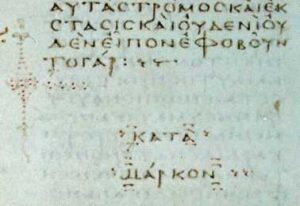 ΑΥΤΑΣΤΡΟΜΟΣΚΑΙΕΚ
ΣΤΑΣΙΣΚΑΙΟΥΔΕΝΙΟΥ
ΔΕΝΕΙΠΟΝΕΦΟΒΟΥΝ
ΤΟΓΑΡ:
ΚΑΤΑ
ΜΑΡΚΟΝ